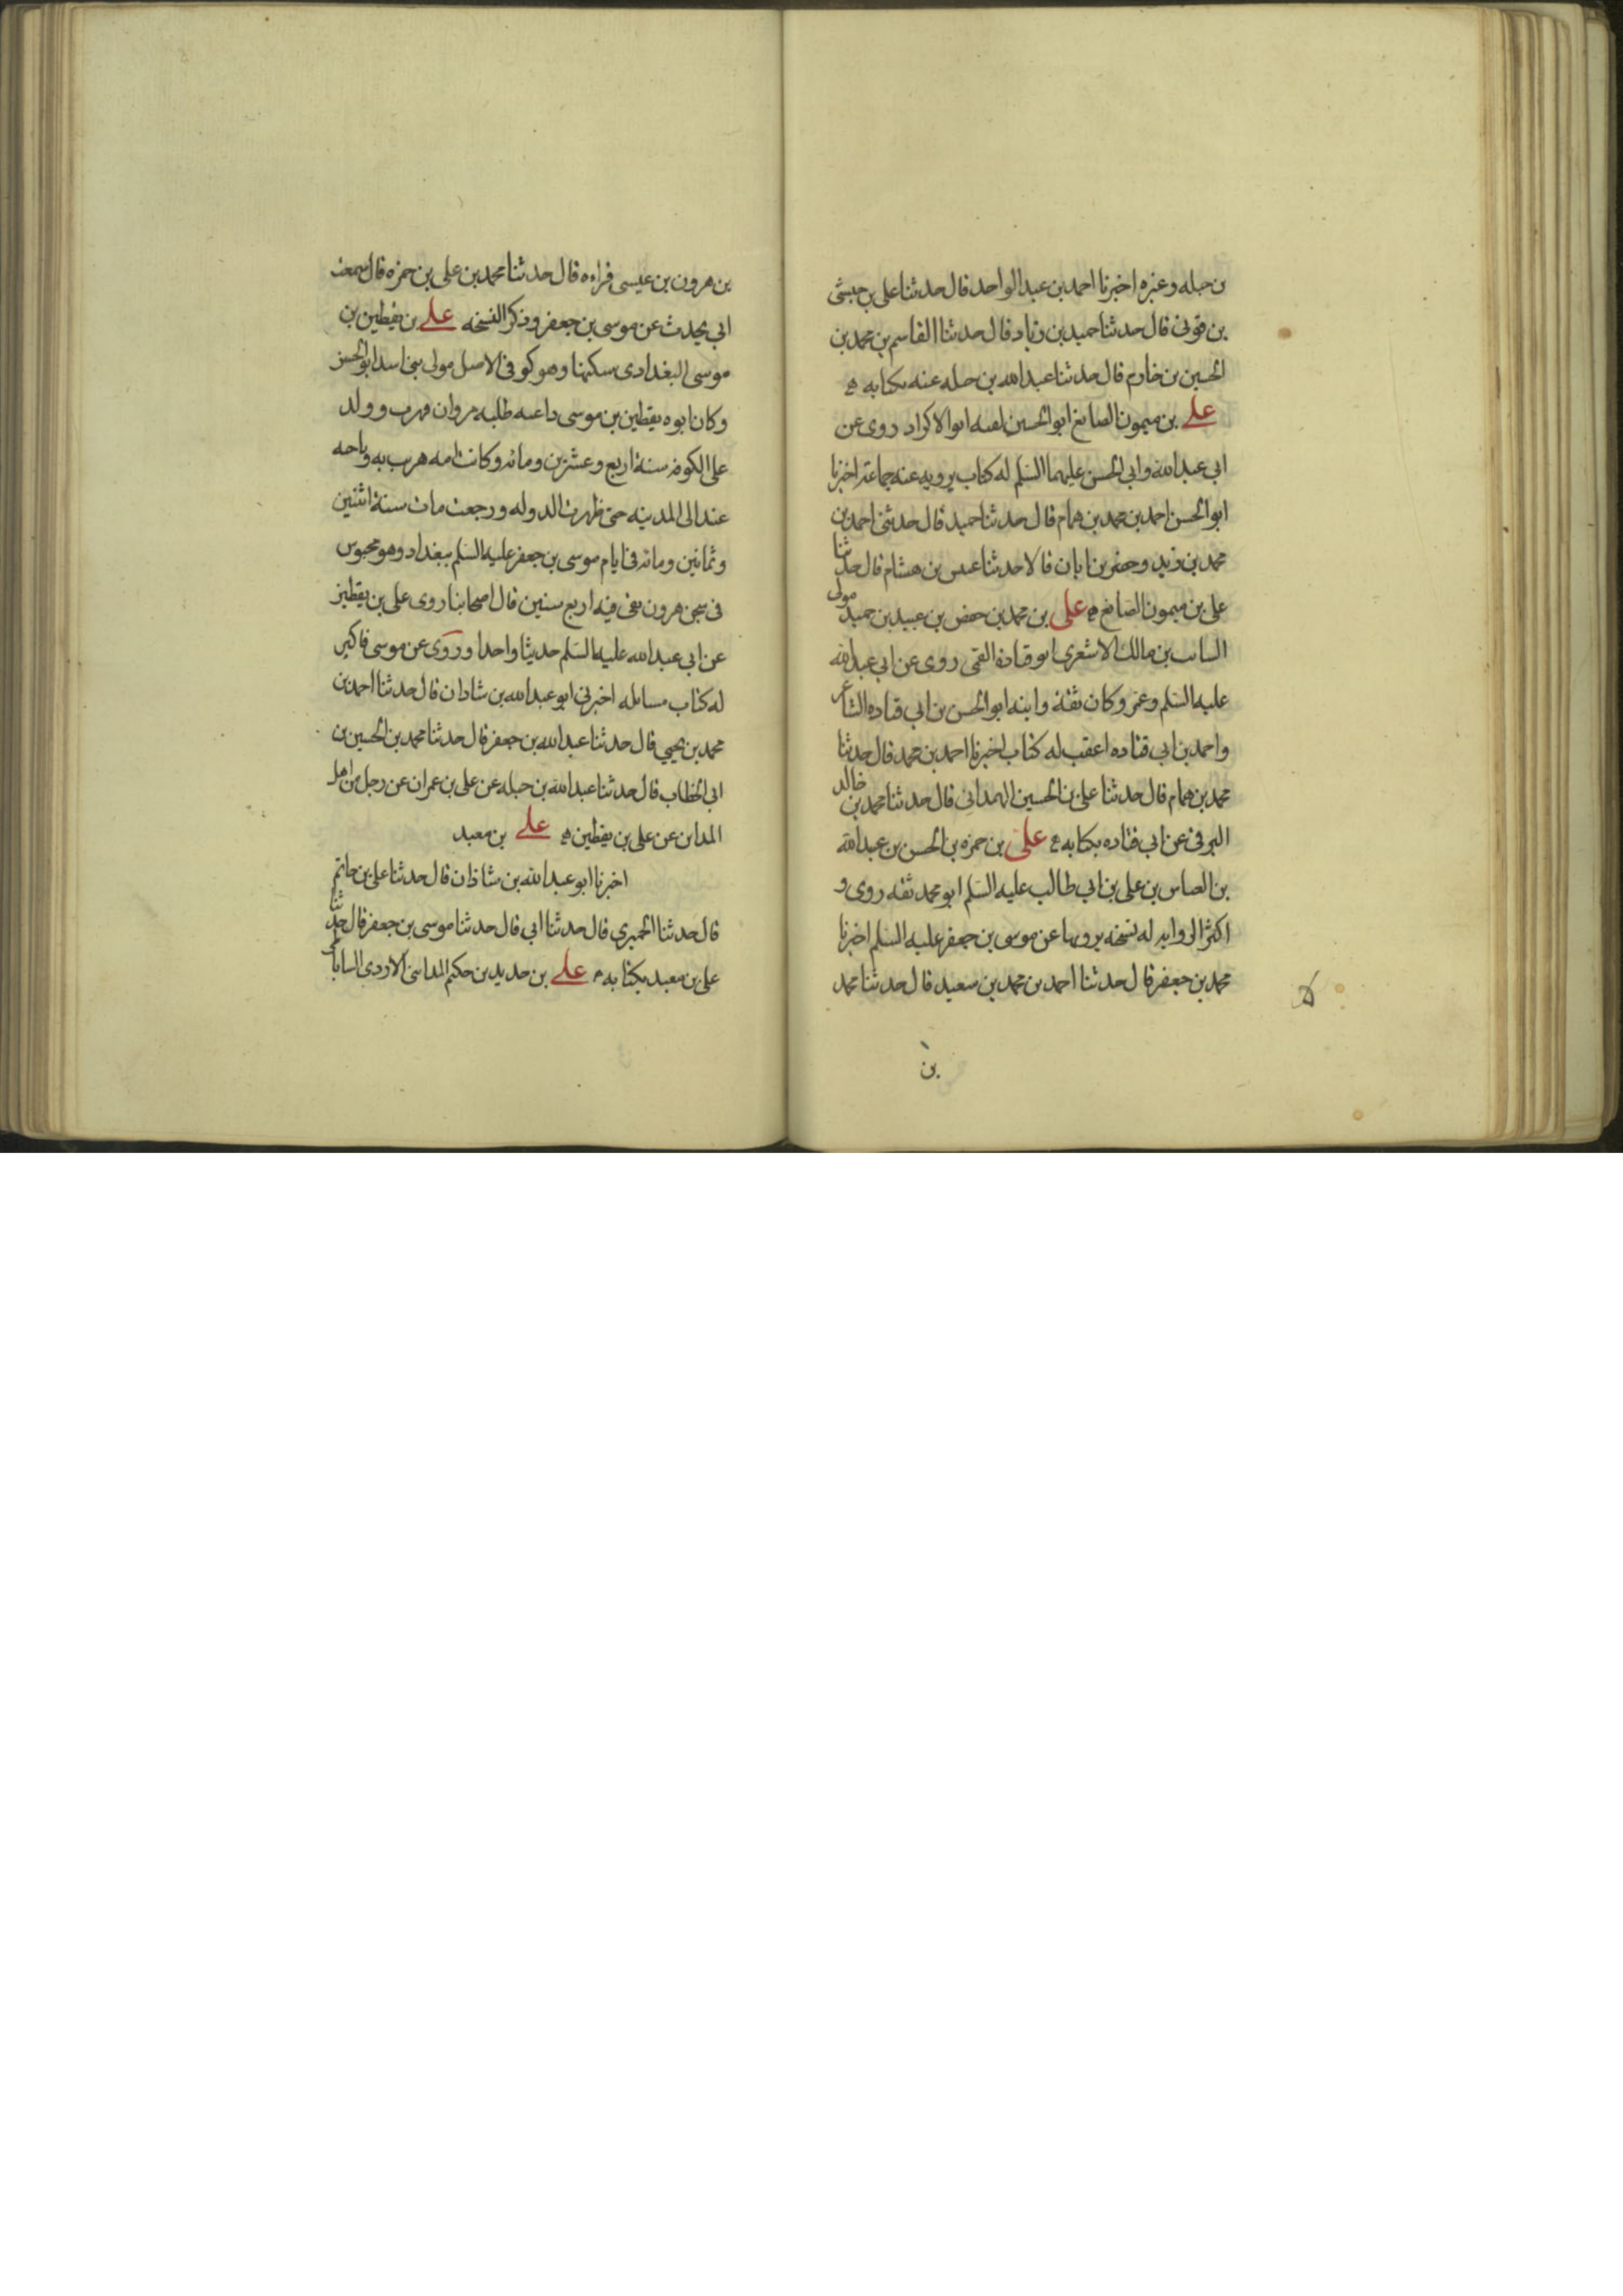 بن جبله وغيره اخبرنا احمد بن عبد الواحد قال حدثنا على بن حبشى
بن قونى قال حدثنا حميد بن زياد قال حدثنا القاسم بن محمد بن
الحسين بن خازم قال حدثنا عبد الله بن جبله عنه بكتابه ه
على بن ميمون الصائغ ابو الحسين لقبه ابو الاكراد روى عن
ابى عبد الله وابى الحسن عليهما السلم له كتاب يرويه عنه جماعة اخبرنا
ابو الحسن احمد بن محمد بن همام قال حدثنا حميد قال حدثنى احمد بن
محمد بن زيد وجعفر بن ابان قالا حدثنا عبيس بن هشام قال حدثنا
على بن ميمون الصائغ ه على بن محمد بن حفص بن عبيد بن حميد مولى
السائب بن مالك الاشعرى ابو قتادة القمى روى عن ابى عبد الله
عليه السلم وعمر وكان ثقة وابنه ابو الحسن بن ابى قتاده الشاعر
واحمد بن ابى قتاده اعقب له كتاب اخبرنا احمد بن محمد قال حدثنا
محمد بن همام قال حدثنا على بن الحسين الهمدانى قال حدثنا محمد بن خالد
البرقى عن ابى قتاده بكتابه ه على بن حمزه بن الحسن بن عبد الله
بن العباس بن على بن ابى طالب عليه السلم ابو محمد ثقه روى و
اكثر الروايه له نسخه يرويها عن موسى بن جعفر عليه السلم اخبرنا
محمد بن جعفر قال حدثنا احمد بن محمد بن سعيد قال حدثنا محمد
بن
بن هرون بن عيسى قراءه قال حدثنا محمد بن على بن حمزه قال سمعت
ابى يحدث عن موسى بن جعفر وذكر النسخه على بن يقطين بن
موسى البغدادى سكنها وهو كوفى الاصل مولى بنى اسد ابو الحسن
وكان ابوه يقطين بن موسى داعيه طلبه مروان فهرب وولد
على بالكوفه سنة اربع وعشرين ومائه وكانت امه هربت به وباخيه
عبيد الى المدينه حتى ظهرت الدوله ورجعت مات سنة اثنين
وثمانين ومائه فى ايام موسى بن جعفر عليه السلم ببغداد وهو محبوس
فى سجن هرون بقى فيه اربع سنين قال اصحابنا روى على بن يقطين
عن ابى عبد الله عليه السلم حديثا واحدا وروى عن موسى فاكثر
له كتاب مسائله اخبرنى ابو عبد الله بن شاذان قال حدثنا احمد بن
محمد بن يحيى قال حدثنا عبد الله بن جعفر قال حدثنا محمد بن الحسين بن
ابى الخطاب قال حدثنا عبد الله بن جبله عن على بن عمران عن رجل من اهل
المدائن عن على بن يقطين ه على بن معبد
اخبرنا ابو عبد الله بن شاذان قال حدثنا على بن حاتم
قال حدثنا الحميرى قال حدثنا ابى قال حدثنا موسى بن جعفر قال حدثنا
على بن معبد بكتابه ه على بن حديد بن حكيم المداينى الازدى الساباطى